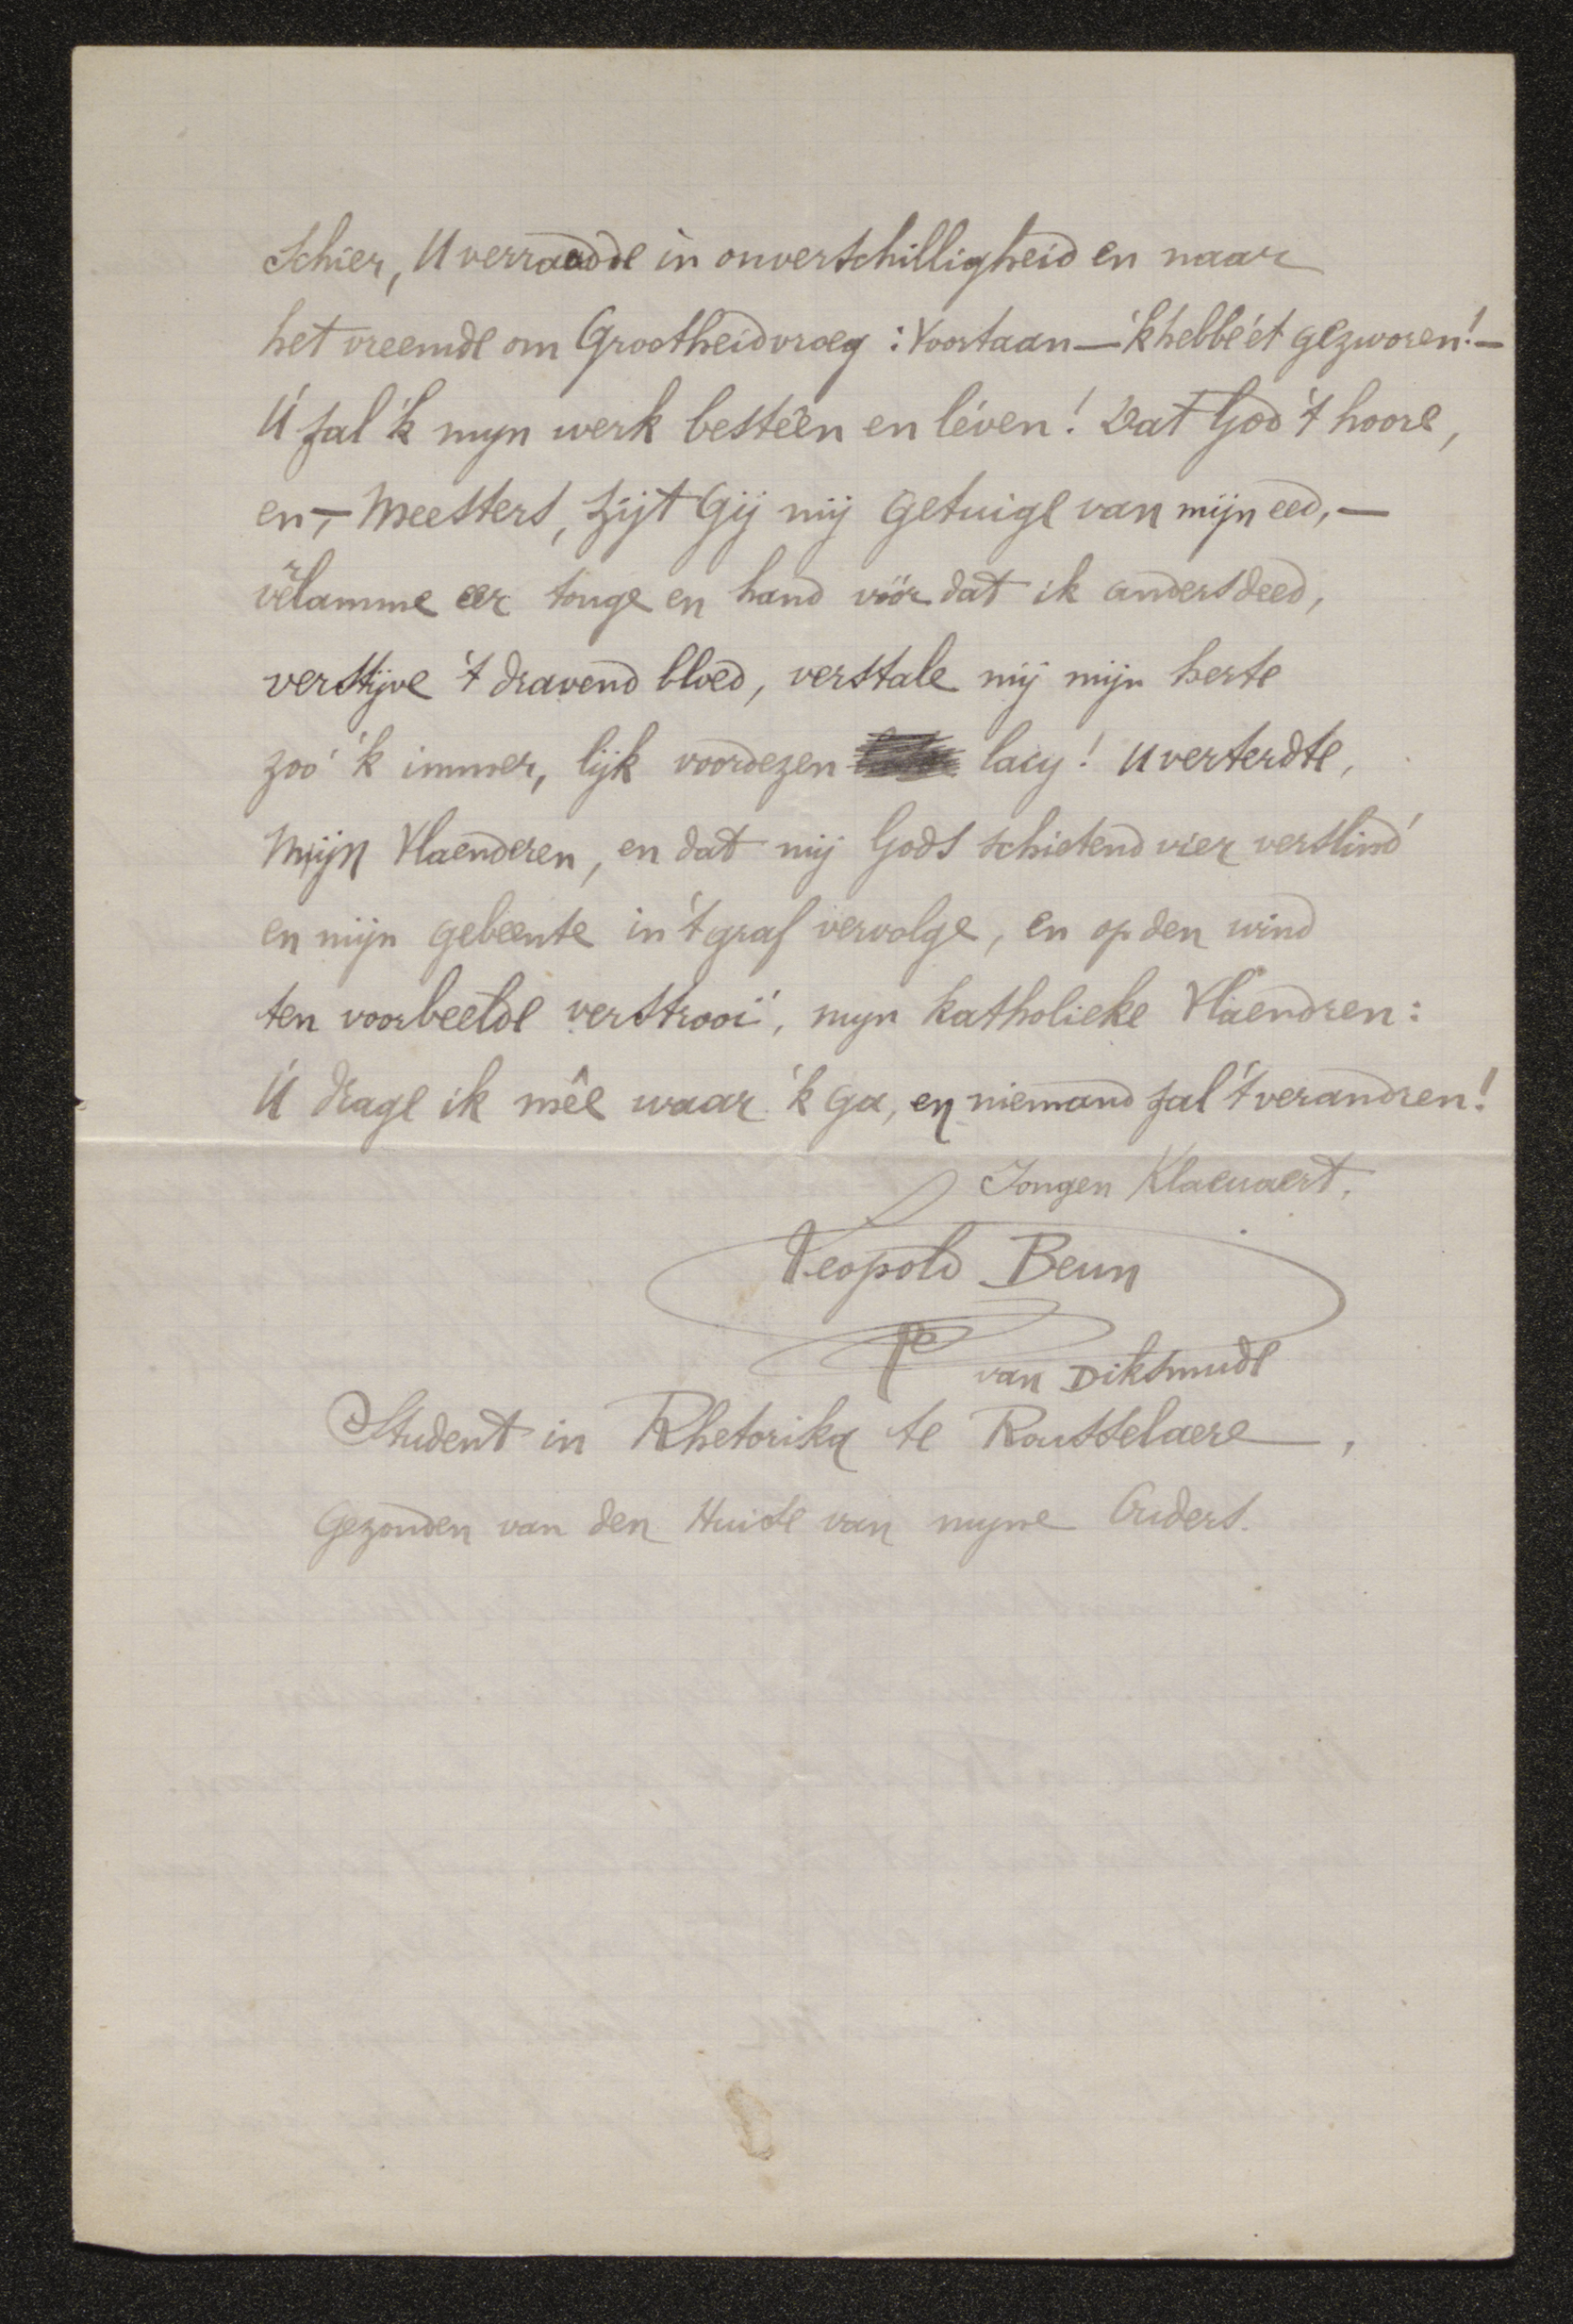 Schier, U verraadde in onverschilligheid en naar
het vreemde om Grootheid vroeg : Voortaan — 'k hebbe 'et gezworen! —
Ú zal 'k mijn werk besteên en léven! Dat God 't hoore,
en, — Meesters, zijt Gij mij getuige van mijn eed, —
verlamme eer tonge en hand vóór dat ik anders deed,
verstijve 't dravend bloed, verstale mij mijn herte
zoo 'k immer, lijk voordezen lacy! U verterdte,
Mijn Vlaenderen, en dat mij Gods schietend vier verslind'
en mijn gebeente in 't graf vervolge, en op den wind
ten voorbeelde verstrooi', mijn katholieke Vlaendren:
Ú drage ik mêe waar 'k ga, en niemand zal 't verandren!
Jongen Klaeuaert.
Leopold Beun
van Diksmude
Student in Rhetorika te Rousselaere,
Gezonden van den Huize van mijne Ouders.